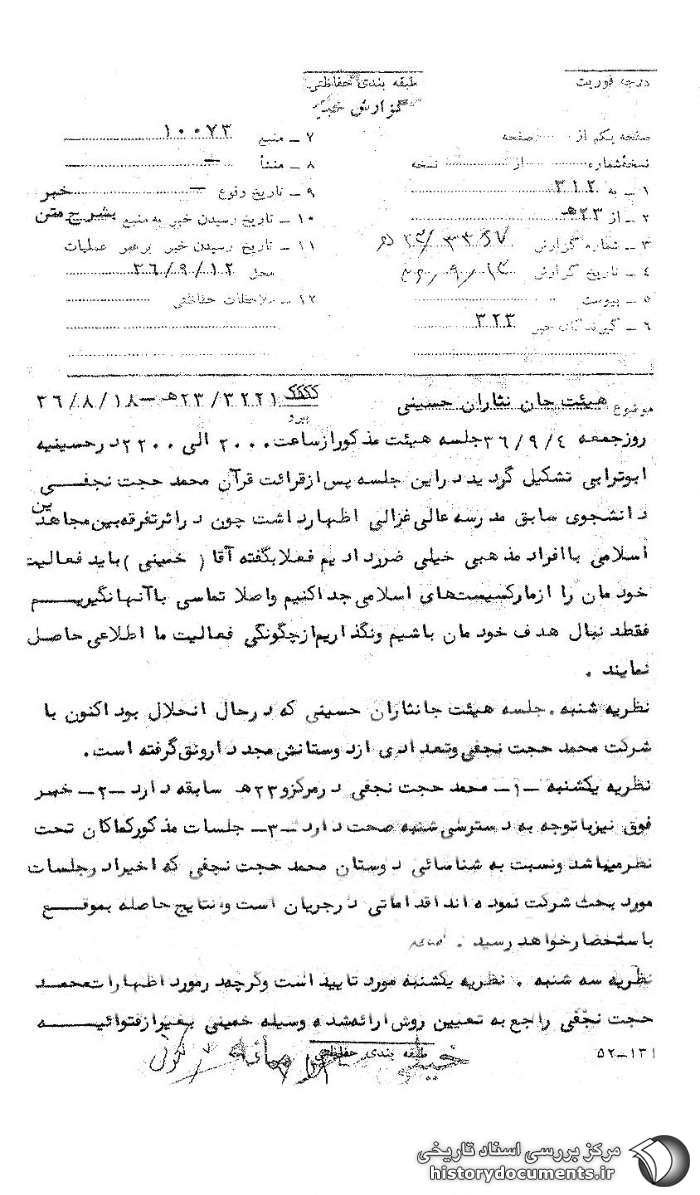 درجه فوریت
طبقه بندی حفاظتی
گزارش خبر
صفحه یکم از ........ صفحه
نسخه شماره ........ از ........ نسخه
۱ ـ به ۳۱۲
۲ ـ از ۲۳هـ
۳ ـ شماره گزارش
۴ ـ تاریخ گزارش
۵ ـ پیوست
۶ ـ گیرندگان خبر ۳۲۳
۷ ـ منبع ۱۰۰۷۳
۸ ـ منشأ ـ
۹ ـ تاریخ وقوع ـ خبر
۱۰ ـ تاریخ رسیدن خبر به منبع بشرح متن
۱۱ ـ تاریخ رسیدن خبر برهبر عملیات
محل ۳۶/۹/۱۲
۱۲ ـ ملاحظات حفاظتی
موضوع هیئت جان نثاران حسینی
پیرو ۲۳/۳۲۲۱هـ ـ ۳۶/۸/۱۸
روز جمعه ۳۶/۹/۴ جلسه هیئت مذکور از ساعت ۲۰۰۰ الی ۲۲۰۰ در حسینیه
ابوترابی تشکیل گردید در این جلسه پس از قرائت قرآن محمد حجت نجفی
دانشجوی سابق مدرسه عالی غزالی اظهار داشت چون در اثر تفرقه بین مجاهدین
اسلامی با افراد مذهبی خیلی ضرر دادیم فعلا بگفته آقا ( خمینی ) باید فعالیت
خودمان را از مارکسیست‌های اسلامی جدا کنیم و اصلا تماسی با آنها نگیریم
فقط دنبال هدف خودمان باشیم و نگذاریم از چگونگی فعالیت ما اطلاعی حاصل
نمایند .
نظریه شنبه . جلسه هیئت جانثاران حسینی که در حال انحلال بود اکنون با
شرکت محمد حجت نجفی و تعدادی از دوستانش مجددا رونق گرفته است .
نظریه یکشنبه ـ۱ـ محمد حجت نجفی در مرکز و ۲۳هـ سابقه دارد ـ۲ـ خبر
فوق نیز با توجه به دسترسی شنبه صحت دارد ـ۳ـ جلسات مذکور کماکان تحت
نظر میباشد و نسبت به شناسائی دوستان محمد حجت نجفی که اخیرا در جلسات
مورد بحث شرکت نموده اند اقداماتی در جریان است و نتایج حاصله بموقع
باستحضار خواهد رسید .
نظریه سه شنبه . نظریه یکشنبه مورد تایید است و گرچه در مورد اظهارات محمد
حجت نجفی راجع به تعیین روش ارائه شده وسیله خمینی بغیر از فتوائیه
طبقه بندی حفاظتی
۵۲ـ۱۳۱
خیلی محرمانه
مرکز بررسی اسناد تاریخی
historydocuments.ir